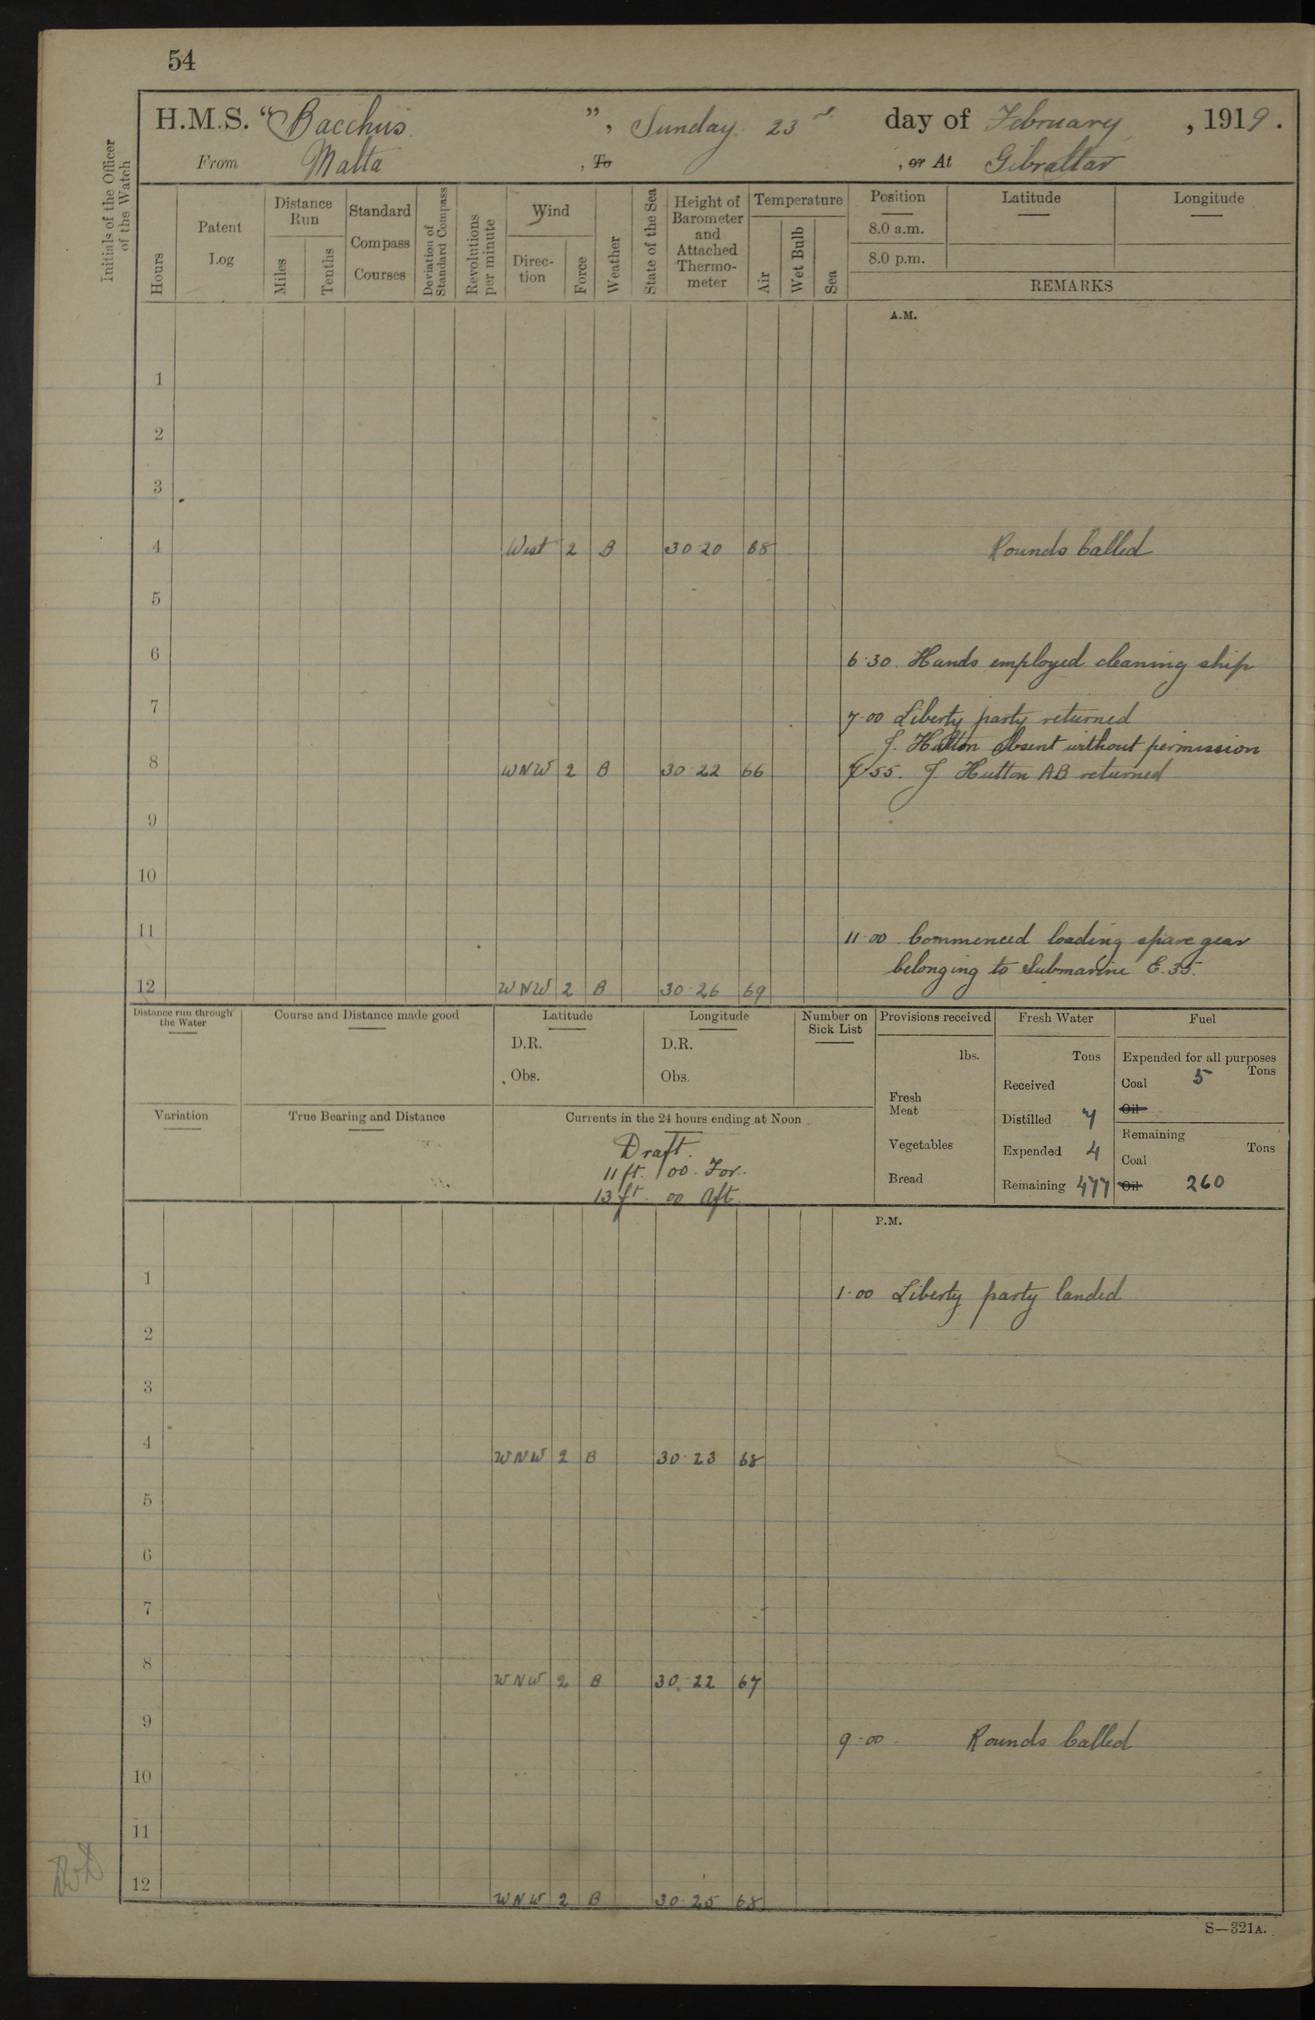 54
H.M.S. "Bacchus", Sunday 23rd day of February, 1919.
From Malta, To , or At Gibraltar
Initials of the Officer of the Watch
Hours
Patent Log
Distance Run
Miles
Tenths
Standard Compass Courses
Deviation of Standard Compass
Revolutions per minute
Wind
Direction
Force
Weather
State of the Sea
Height of Barometer and Attached Thermometer
Temperature
Air
Wet Bulb
Sea
Position
Latitude
Longitude
8.0 a.m.
8.0 p.m.
REMARKS
A.M.
1
2
3
4 West 2 B 30·20 68 Rounds Called
5
6 6·30. Hands employed cleaning ship
7 7·00 Liberty party returned
J. Hutton Absent without permission
8 WNW 2 B 30·22 66 7·55. J Hutton AB returned
9
10
11 11·00 Commenced loading spare gear
belonging to Submarine E.35.
12 WNW 2 B 30·26 69
Distance run through the Water
Course and Distance made good
Latitude
D.R.
Obs.
Longitude
D.R.
Obs.
Number on Sick List
Provisions received
lbs.
Fresh Meat
Vegetables
Bread
Fresh Water
Tons
Received
Distilled 7
Expended 4
Remaining 477
Fuel
Expended for all purposes
Tons
Coal 5
Oil
Remaining
Tons
Coal
Oil 260
Variation
True Bearing and Distance
Currents in the 24 hours ending at Noon
Draft.
11 ft. 00 For.
13 ft. 00 Aft.
P.M.
1 1·00 Liberty party landed
2
3
4 WNW 2 B 30·23 68
5
6
7
8 WNW 2 B 30·22 67
9 9·00 Rounds Called
10
11
12 WNW 2 B 30·25 68
S—321A.